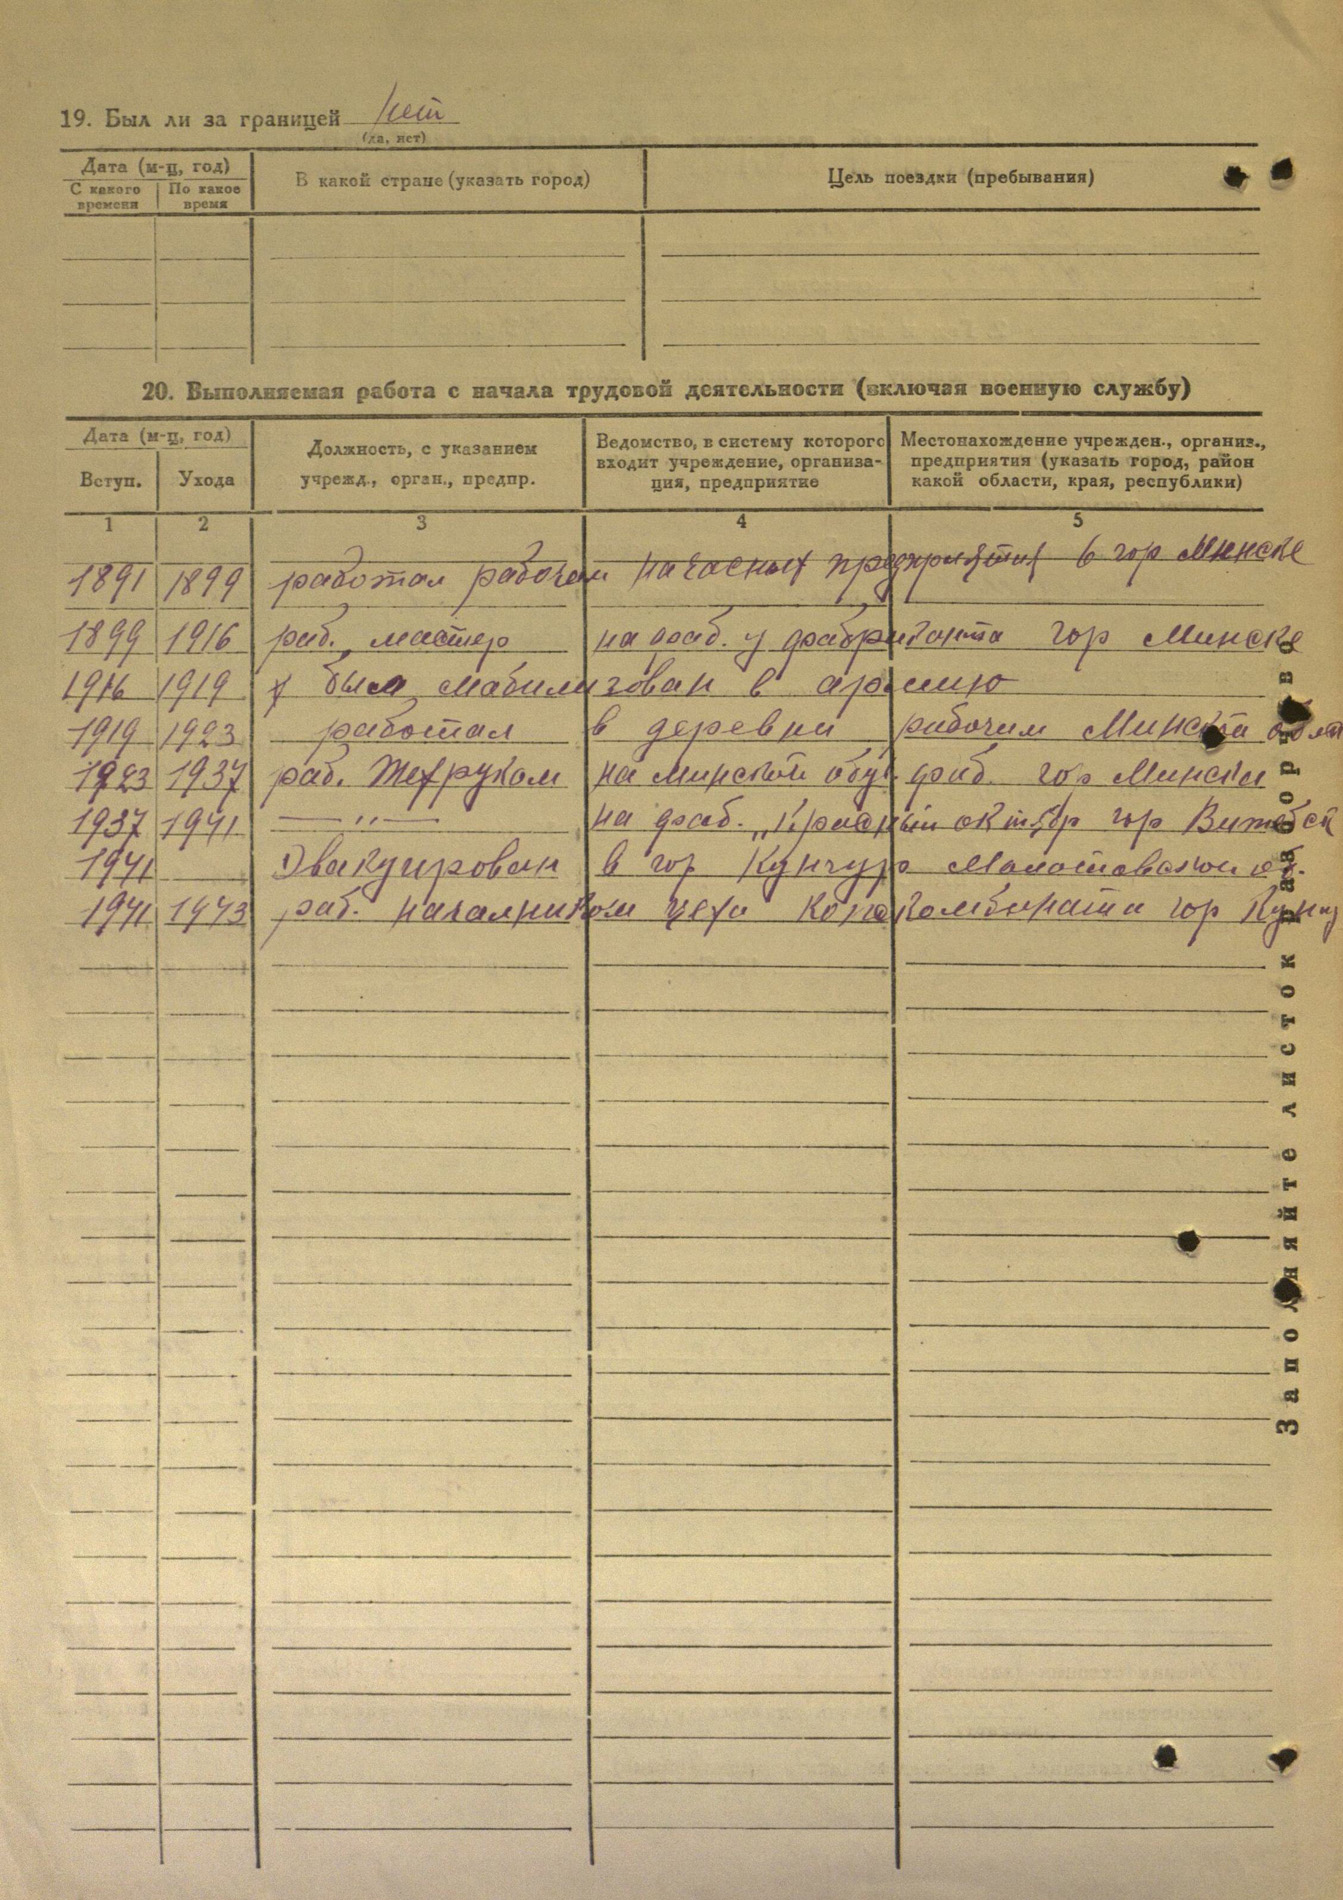 19. Был ли за границей нет
(да, нет)
Дата (м-ц, год)
С какого времени По какое время
В какой стране (указать город)
Цель поездки (пребывания)
20. Выполняемая работа с начала трудовой деятельности (включая военную службу)
Дата (м-ц, год)
Вступ. Ухода
Должность, с указанием
учрежд., орган., предпр.
Ведомство, в систему которого
входит учреждение, организа-
ция, предприятие
Местонахождение учрежден., организ.,
предприятия (указать город, район
какой области, края, республики)
1 2 3 4 5
1891 1899 работал рабочем на часных предприятиях в гор Минске
1899 1916 раб. мастер на фаб. у фабриканта гор Минске
1916 1919 я был мабилизован в армию
1919 1923 работал в деревни рабочим Минска
1923 1937 раб. Техруком на минской обув. фаб. гор Минска
1937 1941 — „ — на фаб. „Красный октябр гор Витебск
1941 Эвакуирован в гор Кунгур Молотовской об.
1941 1943 раб. началником цеха кож комбината гор
Заполняйте листок разборчиво